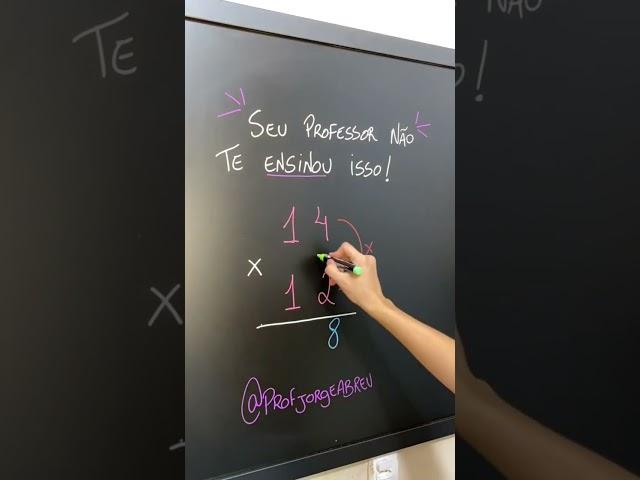 SEU PROFESSOR NÃO
TE ENSINOU ISSO!
1 4
x
x
1 2
8
@PROFJORGEABREU